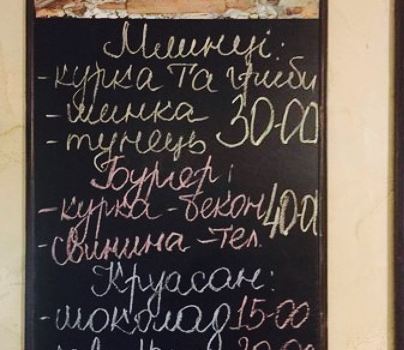 Млинці:
- курка та гриби
- шинка
- тунець 30-00
Бургер:
- курка - бекон 40-0
- свинина - тел.
Круасан:
- шоколад 15-00